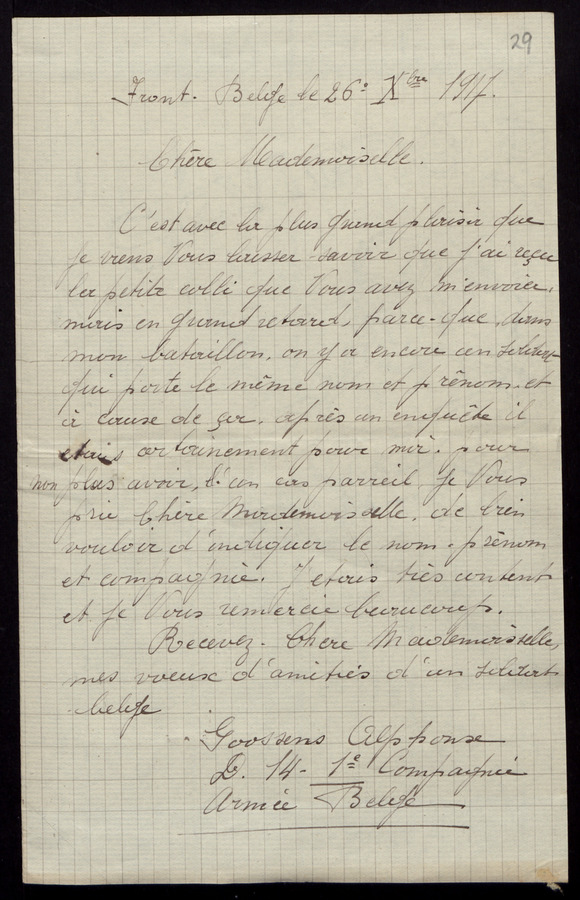 29
Front. Belge le 26° Xbre 1917.
Chère Mademoiselle.
C'est avec la plus grand plaisir que
je viens Vous laisser savoir que j'ai reçu
la petite colli que Vous avez m'envoier,
mais en grand retard, parce-que, dans
mon bataillon, on y a encore un soldat
qui porte le même nom et prénom. et
à cause de ça. après un enquête il
etais certainement pour moi. pour
non plus avoir, un cas parreil, je Vous
prie Chère Mademoiselle. de bien
vouloir d'indiquer le nom. prénom
et compagnie. J'etais très content
et je Vous remercie beaucoup.
Recevez. Chere Mademoiselle,
mes voeux d'amitiés d'un soldat
belge
Goossens Alphonse
D. 14 - 1e Compagnie
Armée Belge